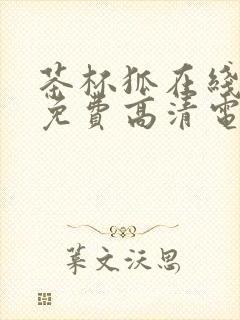 茶杯狐在线
免费高清电
叶文沃思